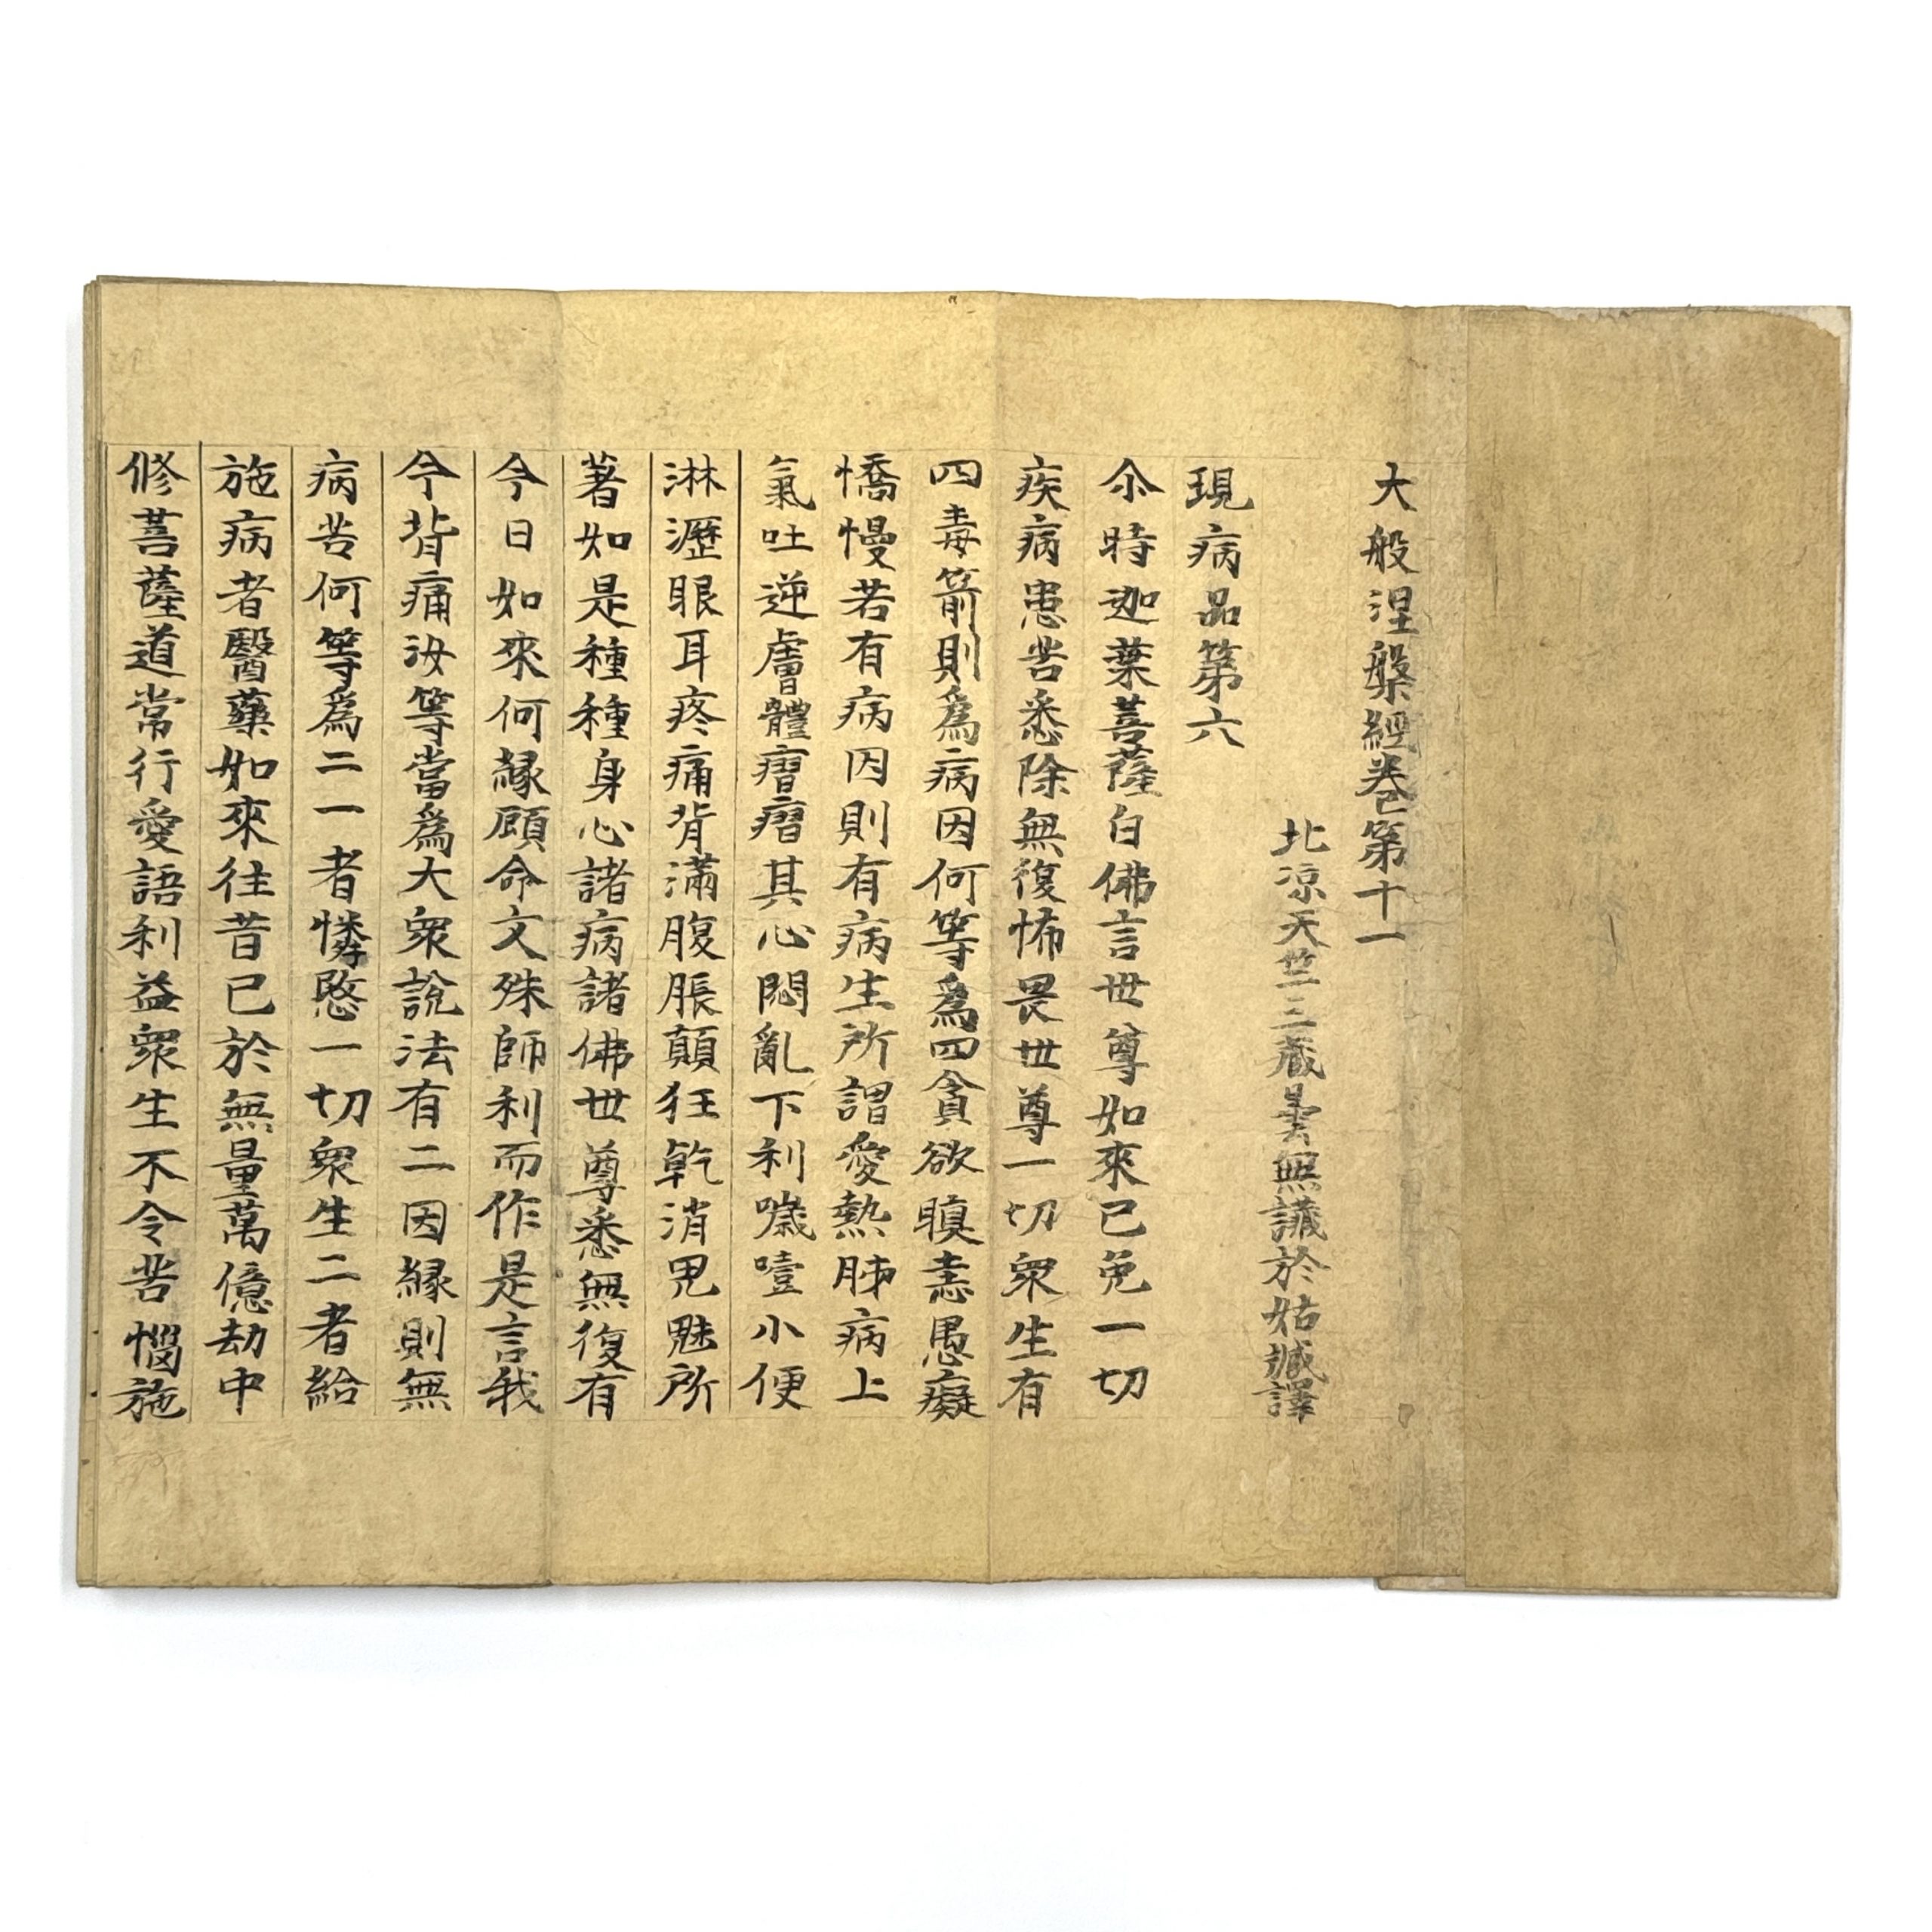 大般涅槃經卷第十一
北涼天竺三藏曇無讖於姑臧譯
現病品第六
尒時迦葉菩薩白佛言世尊如來已免一切
疾病患苦悉除無復怖畏世尊一切衆生有
四毒箭則爲病因何等爲四貪欲瞋恚愚癡
憍慢若有病因則有病生所謂愛熱肺病上
氣吐逆膚體瘡瘡其心悶亂下利噦噎小便
淋瀝眼耳疼痛背滿腹脹顛狂乾消鬼魅所
著如是種種身心諸病諸佛世尊悉無復有
今日如來何緣顧命文殊師利而作是言我
今背痛汝等當爲大衆說法有二因緣則無
病苦何等爲二一者憐愍一切衆生二者給
施病者醫藥如來往昔已於無量萬億劫中
修菩薩道常行愛語利益衆生不令苦惱施